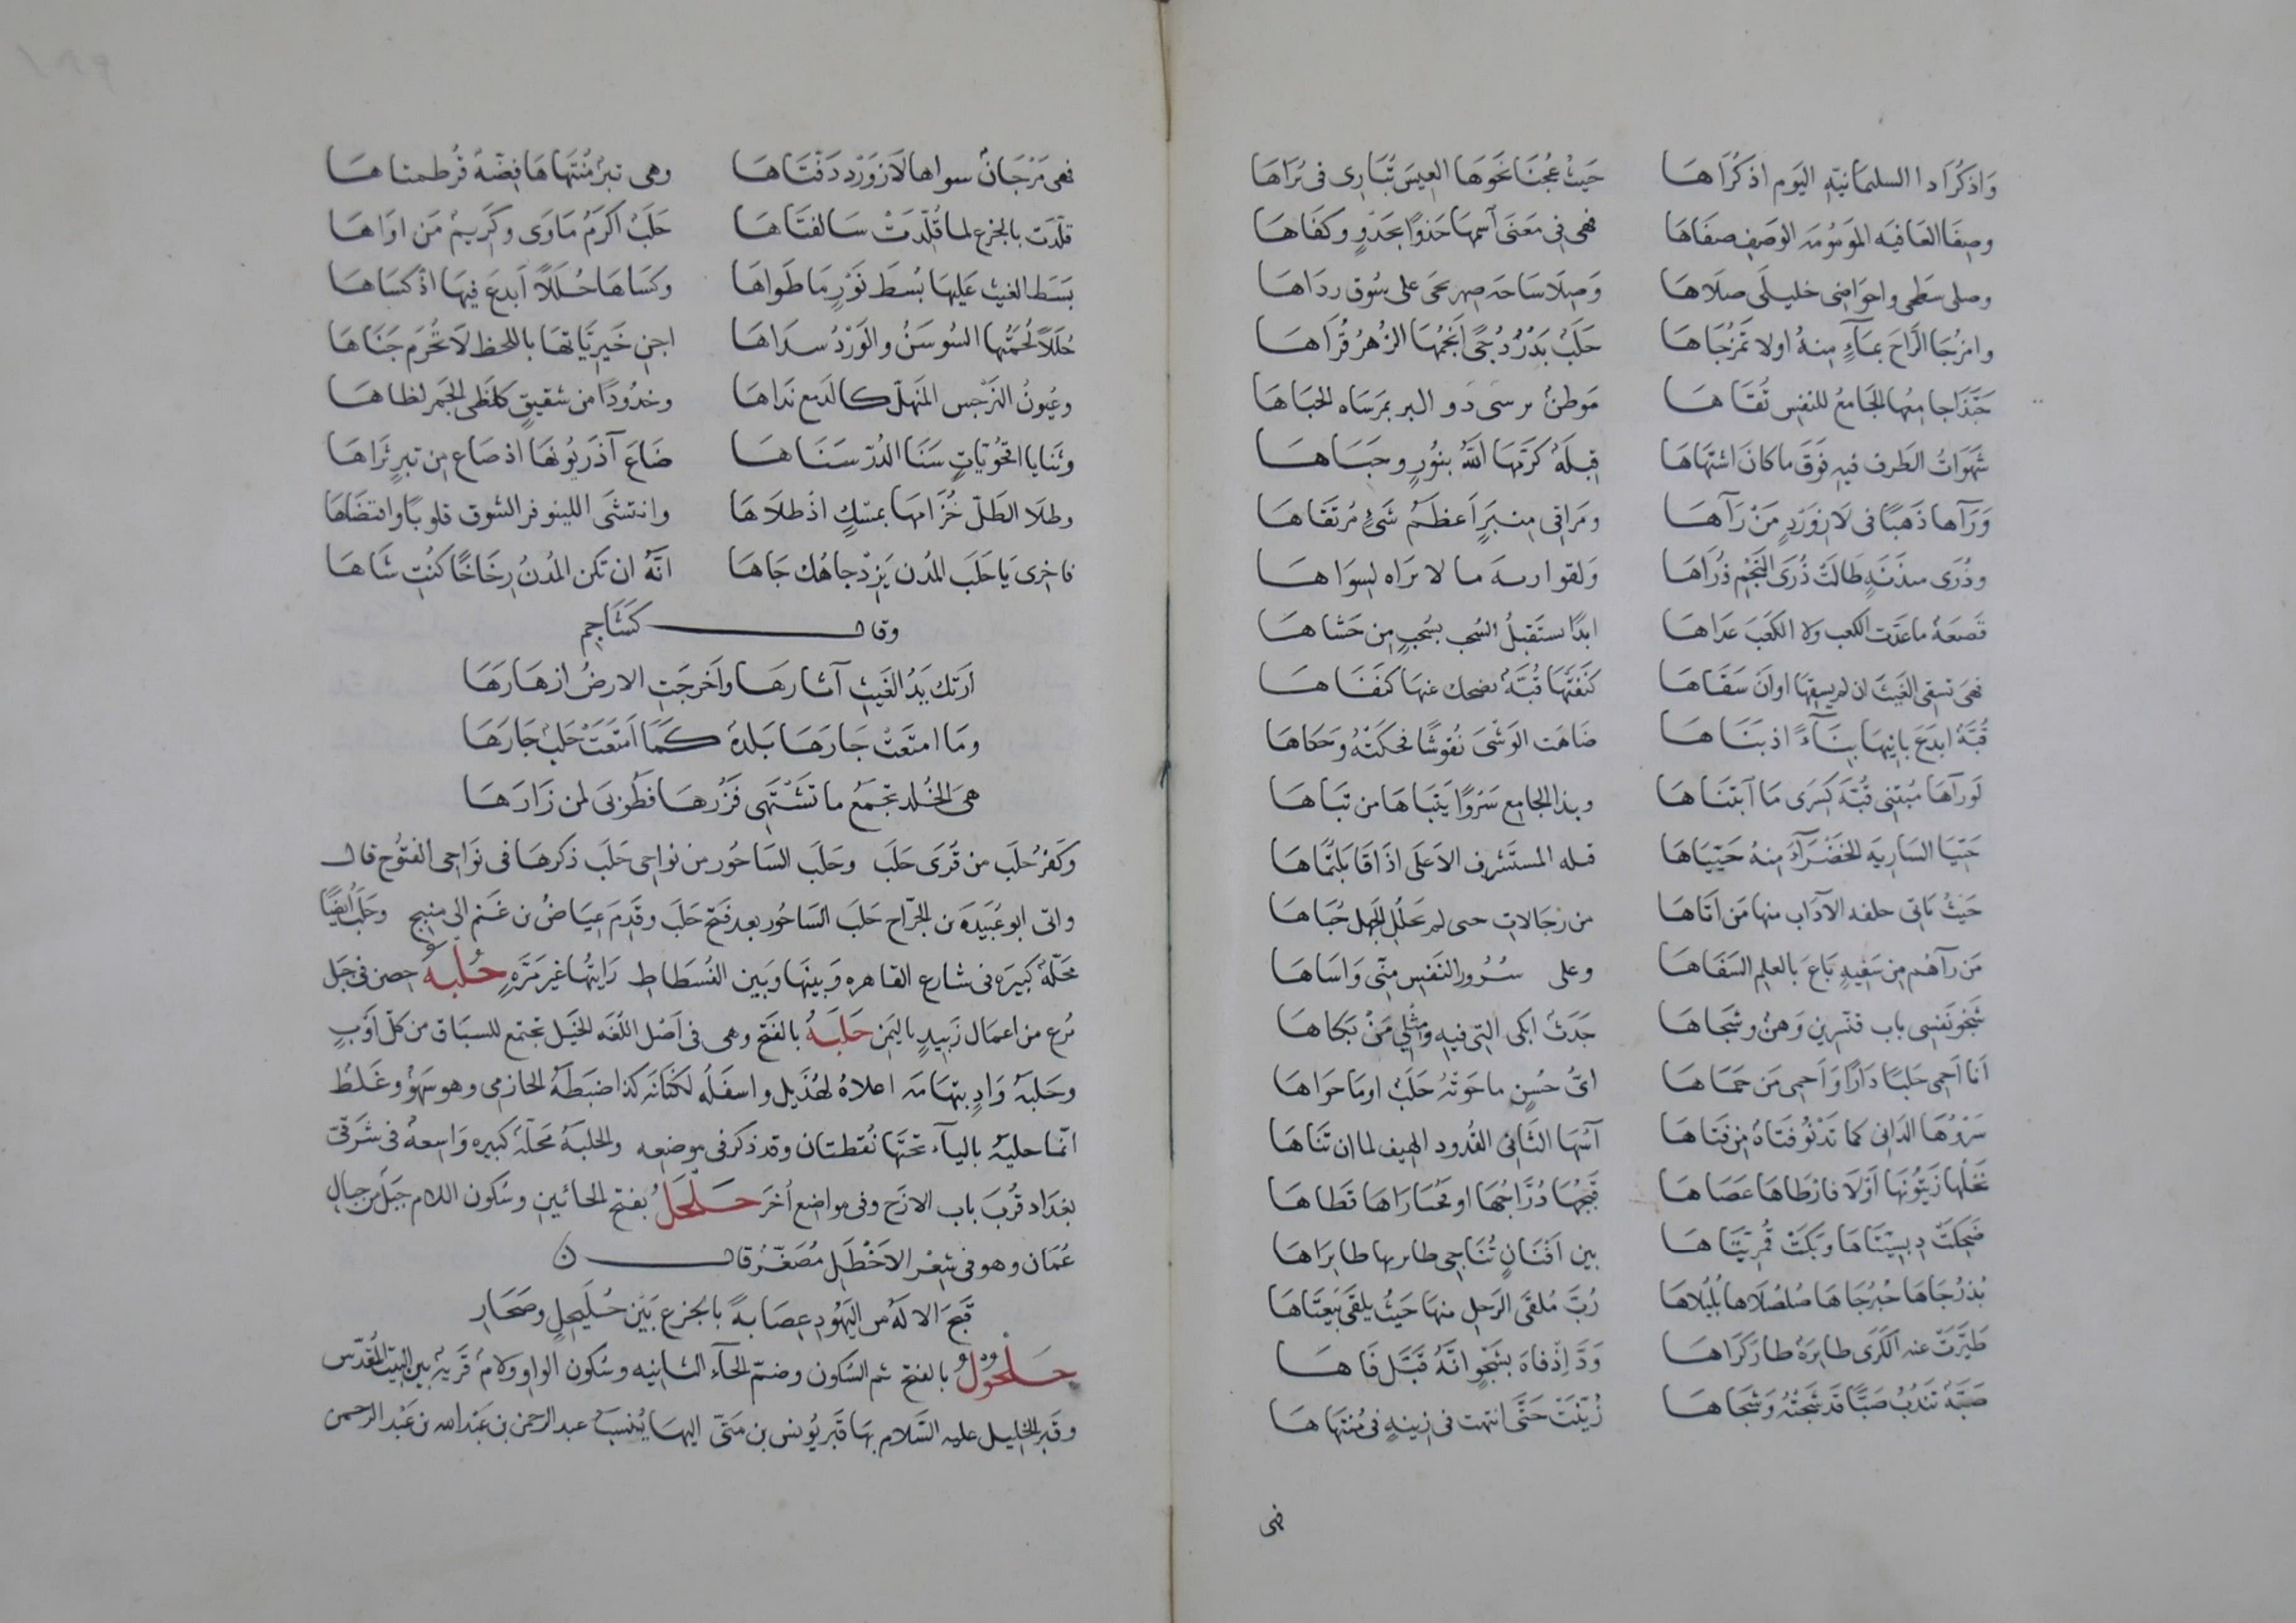 وَاذكُرَا دا السليمانيّةِ اليَوم اذكُرَاهَا حَيثُ عُجنَا نحَوهَا العِيسَ تُبَارِى فى بُرَاهَا
وصِفَا العَافيَه الموَسُومَه الوَصَفِ صفَاهَا فهى فى مَعنَى اسمهَا حَذوًا بحَذوٍ وكفَاهَا
وصلى سَطحى واحوَاضى خليلَى صلَاهَا وَصِلَا سَاحَه صهريحى على سُوق ردَاهَا
وامزُجَا الرَّاحَ بمَاءٍ مِنهُ اولا تمَزُجَاهَا حَلَبُ بَدْرُ دُجًى اَنجُمُهَا الزُهرُ قُرَاهَا
حَبَّذَا جامِعُها الجَامعُ للنفِس تُقَاهَا مَوطنُ مرسَى ذو البر بمَرسَاه لحبَاهَا
شَهَوَاتُ الطَرف فيهِ فَوَق ما كانَ اشتهَاهَا قِبلَهُ كَرّمَهَا اللهُ بنوُرٍ وحَبَاهَا
وَرَآها ذَهَبًا فى لَازوَرْدٍ مَنْ رَآهَا ومَرَاقى مِنبَرٍ اَعظَمُ شَئٍ مُرتَقَاهَا
وذُرَى مىذَنَةٍ طَالَتْ ذُرَى النَجْمِ ذُرَاهَا وَلقوارىه ما لا يرَاه لِسِوَاهَا
قَصَعَهُ ماعَدَت الكعب ولا الكَعَبَ عدَاهَا ابدًا يستَقبلُ السُحب بسُحبٍ مِن حَشاهَا
فهىَ تسقى الغَيثَ ان لم يسقِهَا اوانَ سَقَاهَا كنَفَتَهَا قُبَّهُ يضحك عنهَا كنَفَاهَا
قُبَّهُ ابدَعَ بانِيهَا بِنَاءً اذ بَنَاهَا ضَاهَت الوَشْىَ نُقوشًا فحكَتْهُ وَحكاهَا
لَو رآهَا مُبتَنى قُبّهَ كِسَرى مَا اَبتَنَاهَا وبذا الجامِع سَروًا يَتَبَاهَا من تَبَاهَا
حَيّيَا السَاريَه الخضَرآءَ مِنهُ حَيّيَاهَا قبله المستَشرِف الاَعلَى اذَا قَابَلتُمَاهَا
حَيثُ يَاتى حلقه الآدَاب منها مَن اَتَاهَا من رجَالاتٍ حبى لم يَحلُل الجَهل حُبَاهَا
مَن رآهُم مِن سَفِيهٍ بَاعَ بالعِلمِ السَفَاهَا وعلى سُرُور النَفسِ مِنّى وَاسَاهَا
شَجَو نَفسِى باب قنّسرين وَهنُ وشجَاهَا جَدَثُ ابكى التِى فيهِ ومِثلِي مَنْ بَكاهَا
اَنا اَحمِى حَلبًا دَارًا وَاَحمِى مَن حَمَاهَا اىُّ حُسنٍ ما حَوَتهُ حَلَبُ اومَا حوَاهَا
سَرْوُهَا الدَانى كما تَدْنُو فَتَاهُ مِن فَتَاهَا آسُهَا الثَانى القُدود الهيف لما ان ثَنَاهَا
نَخلُها زَيتُونُهَا اَوْلَا فارْطَاهَا عَصَاهَا قَبَجُهَا دُرَّاجُهَا او حُبَارَاهَا قَطَاهَا
ضَحِكَتَ دبسِيّتَاهَا وَبَكَتْ قُمريّتَاهَا بين اَفنَانٍ تُنَاجِى طايرَيها طايرَاهَا
تُدرُجَاهَا حُبرُجَاهَا صُلصُلَاهَا بُلبُلَاهَا رُبَّ مُلقَى الرَحلِ منهَا حَيثُ يلقَى بَيعَتَاهَا
طَيَّرَتْ عنه الكَرَى طايرَهُ طارَ كَرَاهَا وَدَّ اِذفَاهَ بشَجْوٍ انَّهُ قَبَّل فَاهَا
صَبَّهُ تَندُبُ صَبًّا قَد شَجَتْهُ وَشَجَاهَا زُيّنَتْ حَتَّى انتهت فى زينهٍ فى مُنتهَاهَا
فهى
فهى مَرْجَانُ سواها لَازوَرْد دَفّتَاهَا وهى تبرُ مُنتَهَاهَا فِضّهُ قُرطمتاهَا
قلّدَت بالجزع لما قُلّدَتْ سَالفتَاهَا حَلَبُ اكرَمُ مَاوَى وكرَيمُ مَن اوَاهَا
بَسَطَ الغيث عَلَيهَا بُسطَ نَوْرٍ مَا طَوَاهَا وكسَاهَا حُلَلًا اَبدعَ فيهَا اذ كسَاهَا
حُلَلًا لُحمَتُها السُوسَنُ والوَرْدُ سدَاهَا اجنِ خَيرِيَّاتهَا باللحظ لَا تُحرَم جَنَاهَا
وعيُونُ النَرْجس المُنهَلّ كالدَمع نَدَاهَا وخدُودًا من شقيقٍ كلظَى الجَمر لظاهَا
وثَنايا اقحُوّيَاتٍ سَنَا الدُرّ سَنَاهَا ضَاعَ آذريُونُهَا اذ صَاع مِن تبرٍ ثَرَاهَا
وطلَا الطَلّ خُزَامهَا بمسكٍ اذ طلَاهَا وانتشَى اللينوفر الشوق قلوبًا واقتضَاهَا
فاخرى يَا حَلَب المدُن يَزِدْ جاهُك جَاهَا انَّهُ ان تكن المُدنُ رِخَاخًا كنُتِ شَاهَا
وقال كشَاجِم
اَرَتك يَدُ الغَيثِ آثارهَا واَخرجَتِ الارضُ ازهَارَهَا
ومَا امتَعَتْ جَارَهَا بَلدهُ كمَا اَمتَعَتْ حَلبُ جَارَهَا
هىَ الخُلد تجمَعُ ما تَشْتَهى فَزُرهَا فطُوبَى لمن زَارَهَا
وكَفرُ حلَب من قُرَى حَلَب وحَلَب السَاحُور من نواحى حَلَب ذكرهَا فى نوَاحى الفتُوح قال
واتى ابو عُبَيدَه بن الجرّاح حَلَب السَاحُور بعد فَتح حَلَب وقَدِمَ عيَاضُ بن غَنم الى منبج وحَلَبُ ايضًا
محَلّهُ كبيرَه فى شارع القاهره وَبينهَا وَبين الفُسطَاطِ رَايتُها غير مَرّهٍ حُلْبهُ حصن فى جَبَل
بُرع من اعمَال زَبيدٍ باليمَن حَلبَهُ بالفَتح وهى فى اَصْل اللُّغَه الخَيْل تجتمع للسبَاق من كلّ اَوْبٍ
وحَلبهُ وَادٍ بتهَامَه اعلاهُ لهُذَيل واسفَلُه لكنَانَه كذا ضبَطَهُ الحازمى وهو سَهْوُ وغَلطُ
انمّا حليهُ باليآء تحتَهَا نُقطتان وقد ذكر فى موضعه والحلبهُ محَلّهُ كبيره وَاسعهُ فى شَرقىّ
بغدَاد قُربَ باب الازَج وفى مواضع اُخرَ حَلْحَلُ بفتح الحائينِ وسُكون اللام جَبَل من جبال
عُمَان وهو فى شِعْر الاَخْطَلِ مُصَغّرُ قال
قَبَحَ الالَهُ من اليَهُود عِصَابهً بالجزع بَيْن حُلَيحِلٍ وصَحَارِ
حَلْحُوْلُ بالفتح ثم السُكون وضمّ الحآء الثانيه وسُكون الواو ولامُ قَريهُ بين البَيت المُقدّس
وقبر الخليل عليه السَّلام بهَا قَبر يُونس بن مَتىّ اليهَا يُنسبُ عبد الرحمن بن عَبْد الله بن عَبْد الرحمن